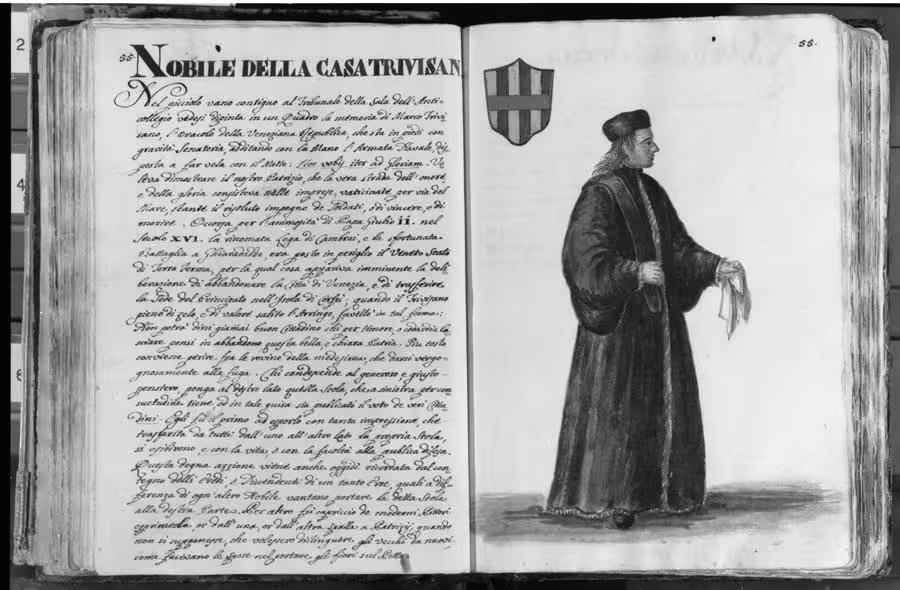 55.
NOBILE DELLA CASA TRIVISAN
Nel picciolo vano contiguo al Tribunale della Sala dell'Anti-
collegio vedesi dipinta in un Quadro la memoria di Marco Trivi
sano, l'Oracolo della Veneziana Republica, che sta in piedi con
gravità Senatoria additando con la Mano l'Armata Navale, dis
posta a far vela con il Motto: vobis iter ad Gloriam. Vo
leva dimostrare il nostro Patrizio, che la vera strada dell'onore,
e della gloria consisteva nelle imprese, vaticinate per via del
Mare, stante il risoluto impegno de Soldati, o di vincere, o di
morire. per l'animosità di Papa Giulio II. nel
Secolo XVI. la rinomata Lega di Cambrai, e la sfortunata
Battaglia a Ghiaradadda era posto in periglio il Veneto Stato
di Terra Ferma, per la qual cosa appariva imminente la deli
berazione di abbandonare la Città di Venezia, e di trasferire
la Sede del Principato nell'Isola di Corfù; quando il Trivisano
pieno di zelo, e di valore salito l'Arringo, favellò in tal forma:
Non potrà dirsi giamai buon Cittadino chi per timore, o codardia la
sciare pensi in abbandono questa bella, e chiara Patria. Più tosto
conviene perire fra le rovine della medesima, che darsi vergo-
gnosamente alla fuga. Chi condescende al generoso e giusto
pensiero, ponga al destro lato quella Stola, che a sinistra per con
suetudine tiene, ed in tale guisa sia publicati il voto de veri Citta
dini. Egli fù il primo ad esporlo con tanta impressione, che
trasferita da tutti dall'uno all'altro lato la propria Stola,
si esibirono e con la vita, e con la facoltà alla publica difesa.
Questa degna azzione viene anche oggidì ricordata dal con
tegno delli Eredi, e Discendenti di un tanto Eroe, quali a dif
ferenza di ogn'altro Nobile vantano portare la detta Stola
alla destra Parte. Per altro fù capriccio de moderni Pittori
esprimerla, or dall'una, or dall'altra Spalla a Patrizij, quando
non si supponesse, che volessero distinguere gli vecchi da nuovi
come facevano le fosse nel portare gli fiori sul Petto
55.